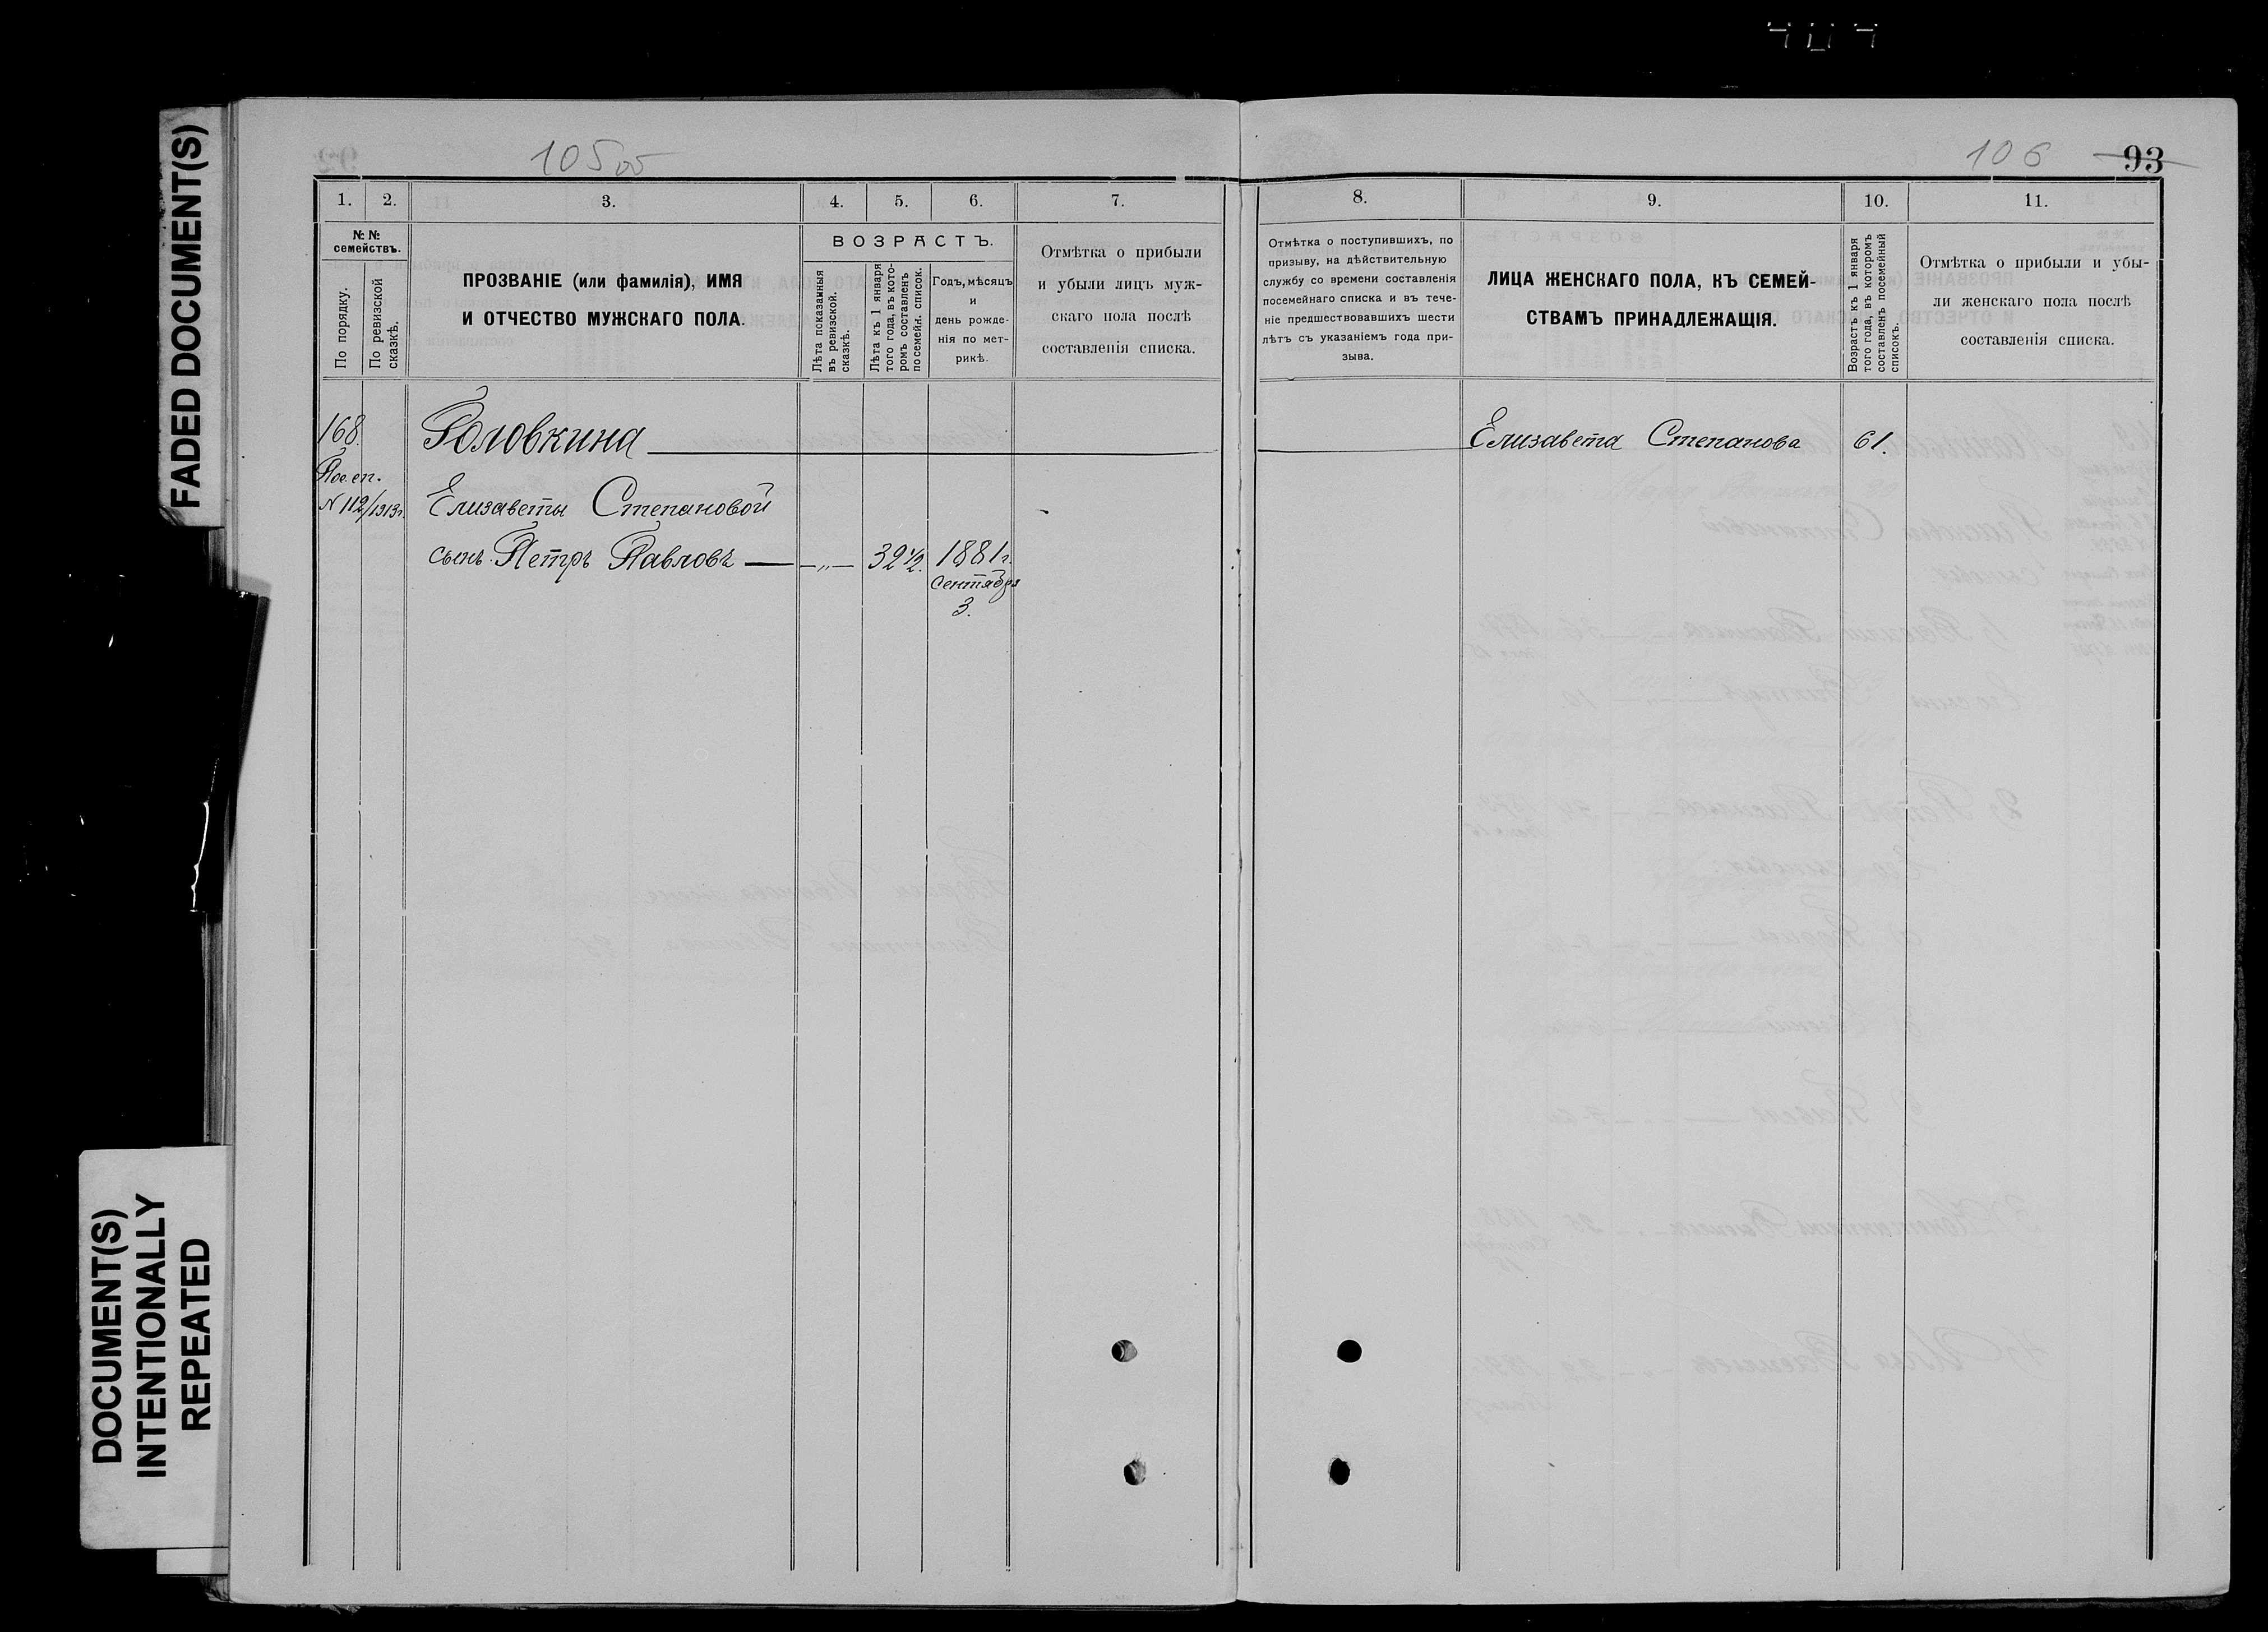 FADED DOCUMENT(S)
DOCUMENT(S)
INTENTIONALLY
REPEATED
105 об
1. 2. 3. 4. 5. 6. 7.
№ №
семействъ.
По порядку.
По ревизской
сказкѣ.
ПРОЗВАНІЕ (или фамилія), ИМЯ
И ОТЧЕСТВО МУЖСКАГО ПОЛА.
ВОЗРАСТЪ.
Лѣта показанныя
въ ревизской.
сказкѣ.
Лѣта къ 1 января
того года, въ кото-
ромъ составленъ
посемейн. список.
Годъ, мѣсяцъ
и
день рожде-
нія по мет-
рикѣ.
Отмѣтка о прибыли
и убыли лицъ муж-
скаго пола послѣ
составленія списка.
168.
Пос. сп.
N 112/1913г.
Головкина
Елизаветы Степановой
сынъ Петръ Павловъ — „ — 32 1/2. 1881 г.
Сентября
3.
106 93
8. 9. 10. 11.
Отмѣтка о поступившихъ, по
призыву, на дѣйствительную
службу со времени составленія
посемейнаго списка и въ тече-
ніе предшествовавшихъ шести
лѣтъ съ указаніемъ года при-
зыва.
ЛИЦА ЖЕНСКАГО ПОЛА, КЪ СЕМЕЙ-
СТВАМЪ ПРИНАДЛЕЖАЩІЯ.
Возрастъ къ 1 января
того года, въ которомъ
составленъ посемейный
списокъ.
Отмѣтка о прибыли и убы-
ли женскаго пола послѣ
составленія списка.
Елизавета Степанова 61.